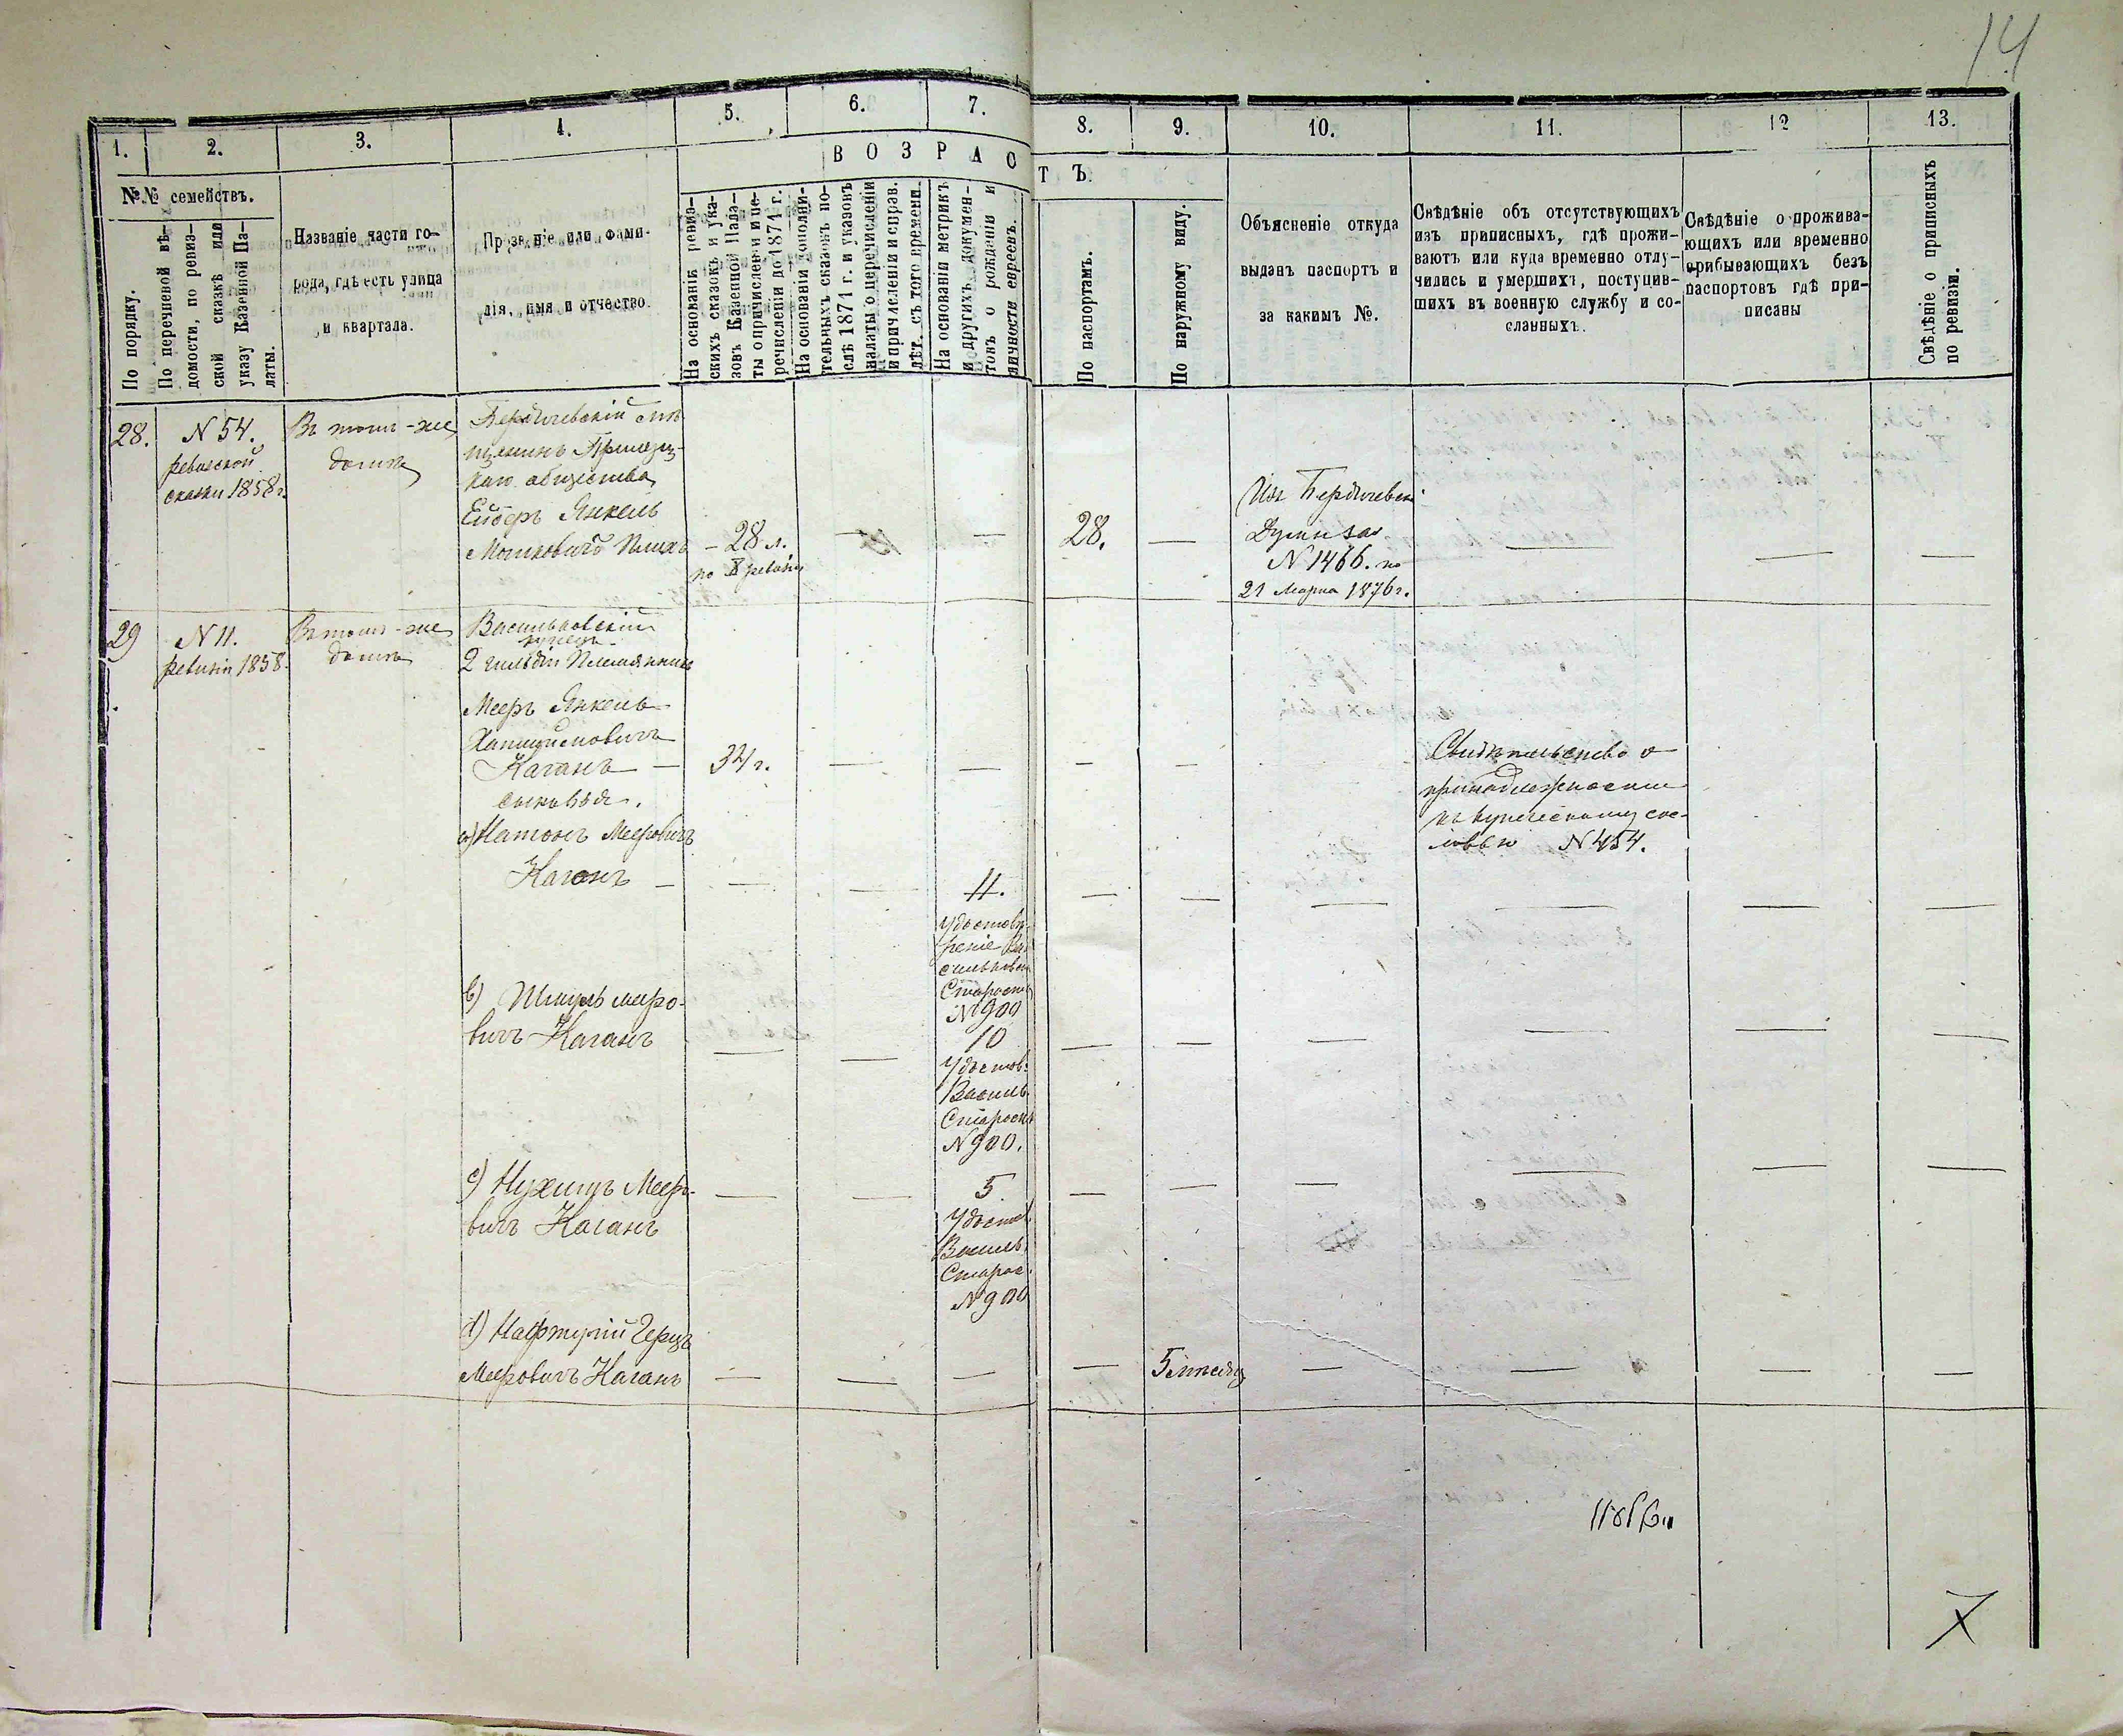 14
1. 2. 3. 4. 5. 6. 7. 8. 9. 10. 11. 12 13.
ВОЗРАСТЪ.
№№ семействъ.
По порядку.
По перечневой вѣ-
домости, по ревиз-
ской сказкѣ или
указу Казенной Па-
латы.
Названіе части го-
рода, гдѣ есть улица
и квартала.
Прозваніе или фами-
лія, имя и отчество.
На основаніи ревиз-
скихъ сказокъ и ука-
зовъ Казенной Пала-
ты о причисленіи и пе-
речисленіи до 1871 г.
На основаніи дополни-
тельныхъ сказокъ по-
слѣ 1871 г. и указовъ
палаты о перечисленіи
и причисленіи и справ.
лѣт. съ того времени.
На основаніи метрикъ
и другихъ докумен-
товъ о рожденіи и
личности евреевъ.
По паспортамъ.
По наружному виду.
Объясненіе откуда
выданъ паспортъ и
за какимъ №.
Свѣдѣніе объ отсутствующихъ
изъ приписныхъ, гдѣ прожи-
ваютъ или куда временно отлу-
чились и умершихъ, поступив-
шихъ въ военную службу и со-
сланныхъ.
Свѣдѣніе о прожива-
ющихъ или временно
прибывающихъ безъ
паспортовъ гдѣ при-
писаны
Свѣдѣніе о приписныхъ
по ревизіи.
28.
N 54.
ревизской
сказки 1858 г.
Въ томъ-же
домѣ
Бердичевскій мѣ
щанинъ
каго общества
Янкель
Мошковичъ
– 28 л.
по X ревизіи
—
—
28.
—
Изъ Бердичевск.
Думы за
N 1466. по
21 Марта 1876 г.
—
—
—
29
N 11.
ревизіи 1858.
Въ томъ-же
домѣ
Васильковскій
купецъ
2 гильдіи
Мееръ Янкель
Каганъ —
34 г.
—
—
—
—
Свидѣтельство о
принадлежности
къ купеческому сос-
ловью N 454.
сыновья.
а) Натанъ Мееровичъ
Каганъ —
—
—
11.
Удостовѣ-
реніе Ва
сильковск
Старосты
N 900
—
—
—
—
—
—
b) Шмуль Меро-
вичъ Каганъ
—
—
10
Удостов.
Василь
Старосты
N 900.
—
—
—
—
—
—
с) Нухимъ Меер-
вичъ Каганъ
—
—
5.
Удостов.
Василь.
Старос.
N 900
—
—
—
—
—
—
d) Нафтулій Герцъ
Мееровичъ Каганъ
—
—
—
—
5 мѣсяц
—
—
—
—